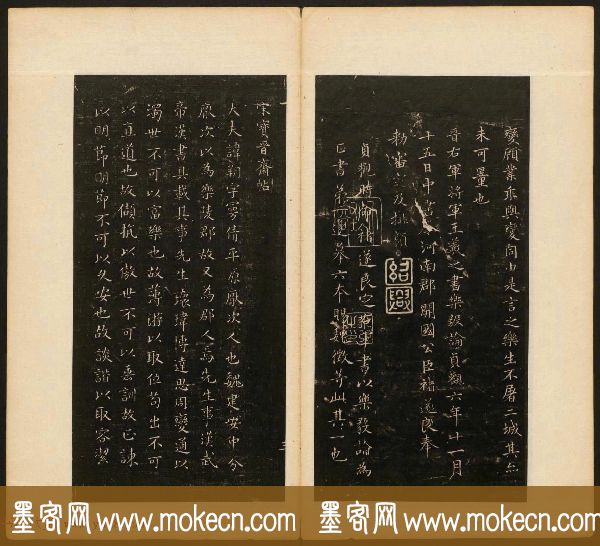 變願業乖與變同由是言之樂生不屠二城其亦
未可量也
晉右軍將軍王羲之書樂毅論貞觀六年十一月
十五日中書 河南郡開國公臣褚遂良奉
勅審定及排類
紹興
貞觀時 褚遂良定右軍書以樂毅論為
正書第一 摹六本賜魏徵等此其一也
宋寶晉齋帖
大夫諱朔字曼倩平原厭次人也魏建安中分
厭次以為樂陵郡故又為郡人焉先生事漢武
帝漢書具載其事先生瓌瑋博達思周變通以
濁世不可以富樂也故薄游以取位苟出不可
以直道也故傾抗以傲世不可以垂訓故正諫
以明節明節不可以久安也故談諧以取容潔
墨客网 www.mokecn.com 墨客网 www.mokecn.com